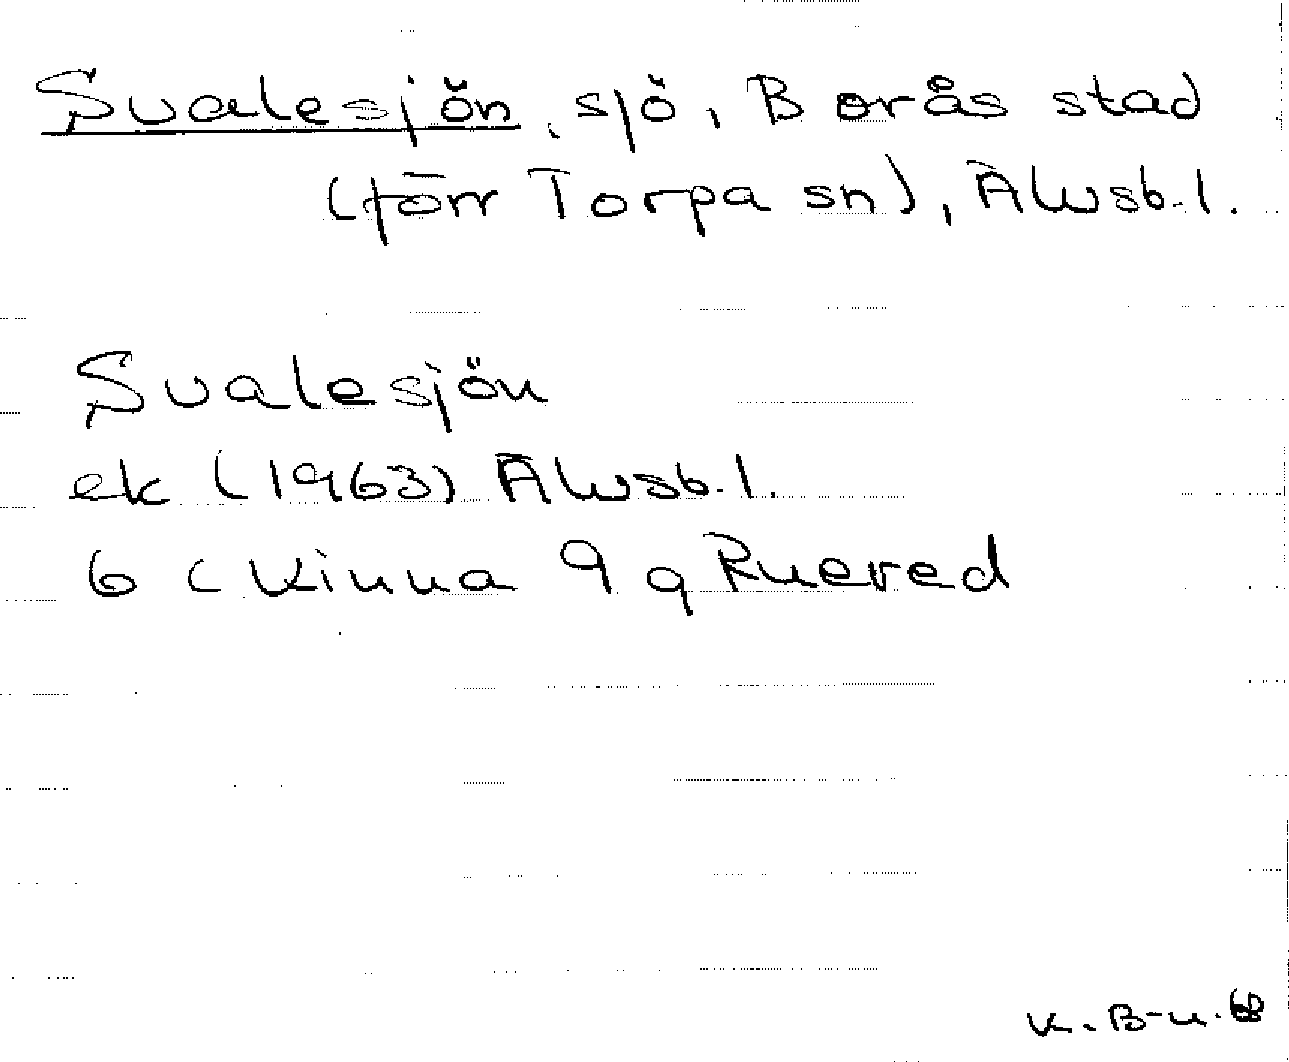 Svalesjön, sjö, Borås stad
(förr Torpa sn), Älvsb. l.
Svalesjön
ek (1963) Älvsb. l.
6 C Kinna 9 g Ruered
K. B-n. 68